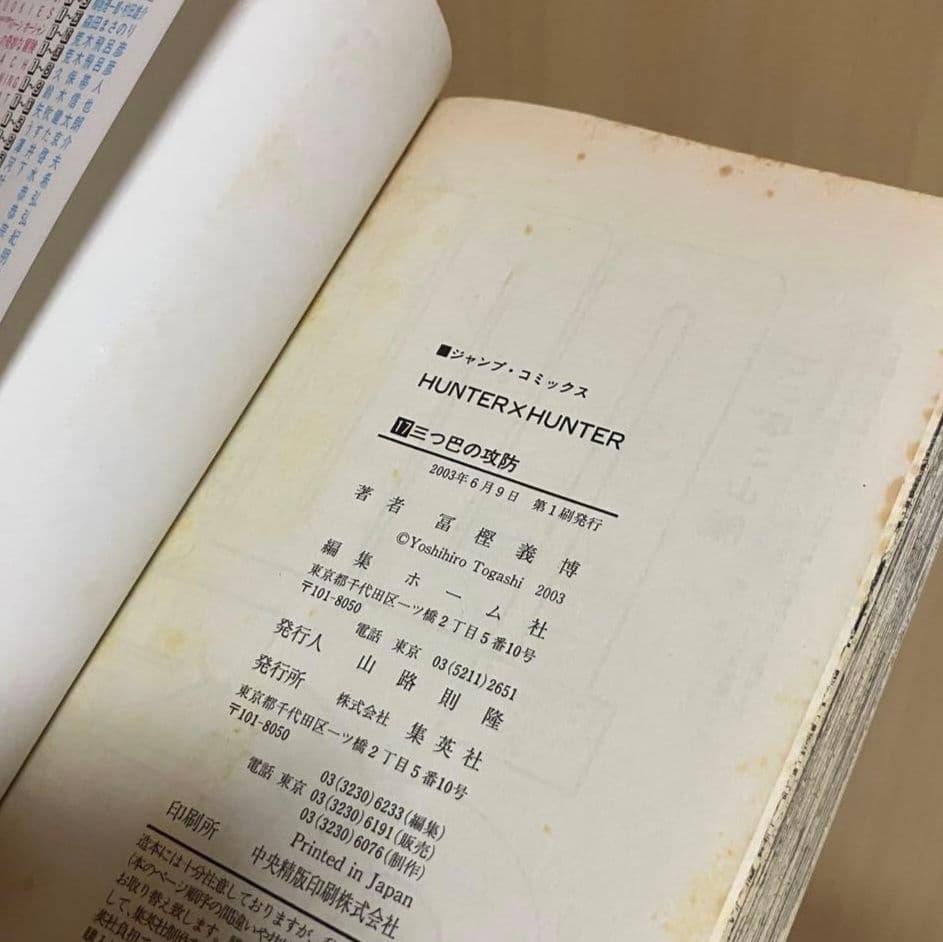 ■ジャンプ・コミックス
HUNTER×HUNTER
17三つ巴の攻防
2003年6月9日 第1刷発行
著者 冨樫義博
©Yoshihiro Togashi 2003
編集 ホーム社
東京都千代田区一ツ橋2丁目5番10号
〒101-8050
電話 東京 03(5211)2651
発行人 山路則隆
発行所 株式会社 集英社
東京都千代田区一ツ橋2丁目5番10号
〒101-8050
03(3230)6233(編集)
電話 東京 03(3230)6191(販売)
03(3230)6076(制作)
Printed in Japan
印刷所 中央精版印刷株式会社
造本には十分注意しておりますが、
(本のページ順序の間違いや
お取り替え致します。
して、集英社制作
英社負担で
森田まさのり
荒木飛呂彦
荒木飛呂彦
久保帯人
鈴木信也
矢吹健太朗
うすた京介